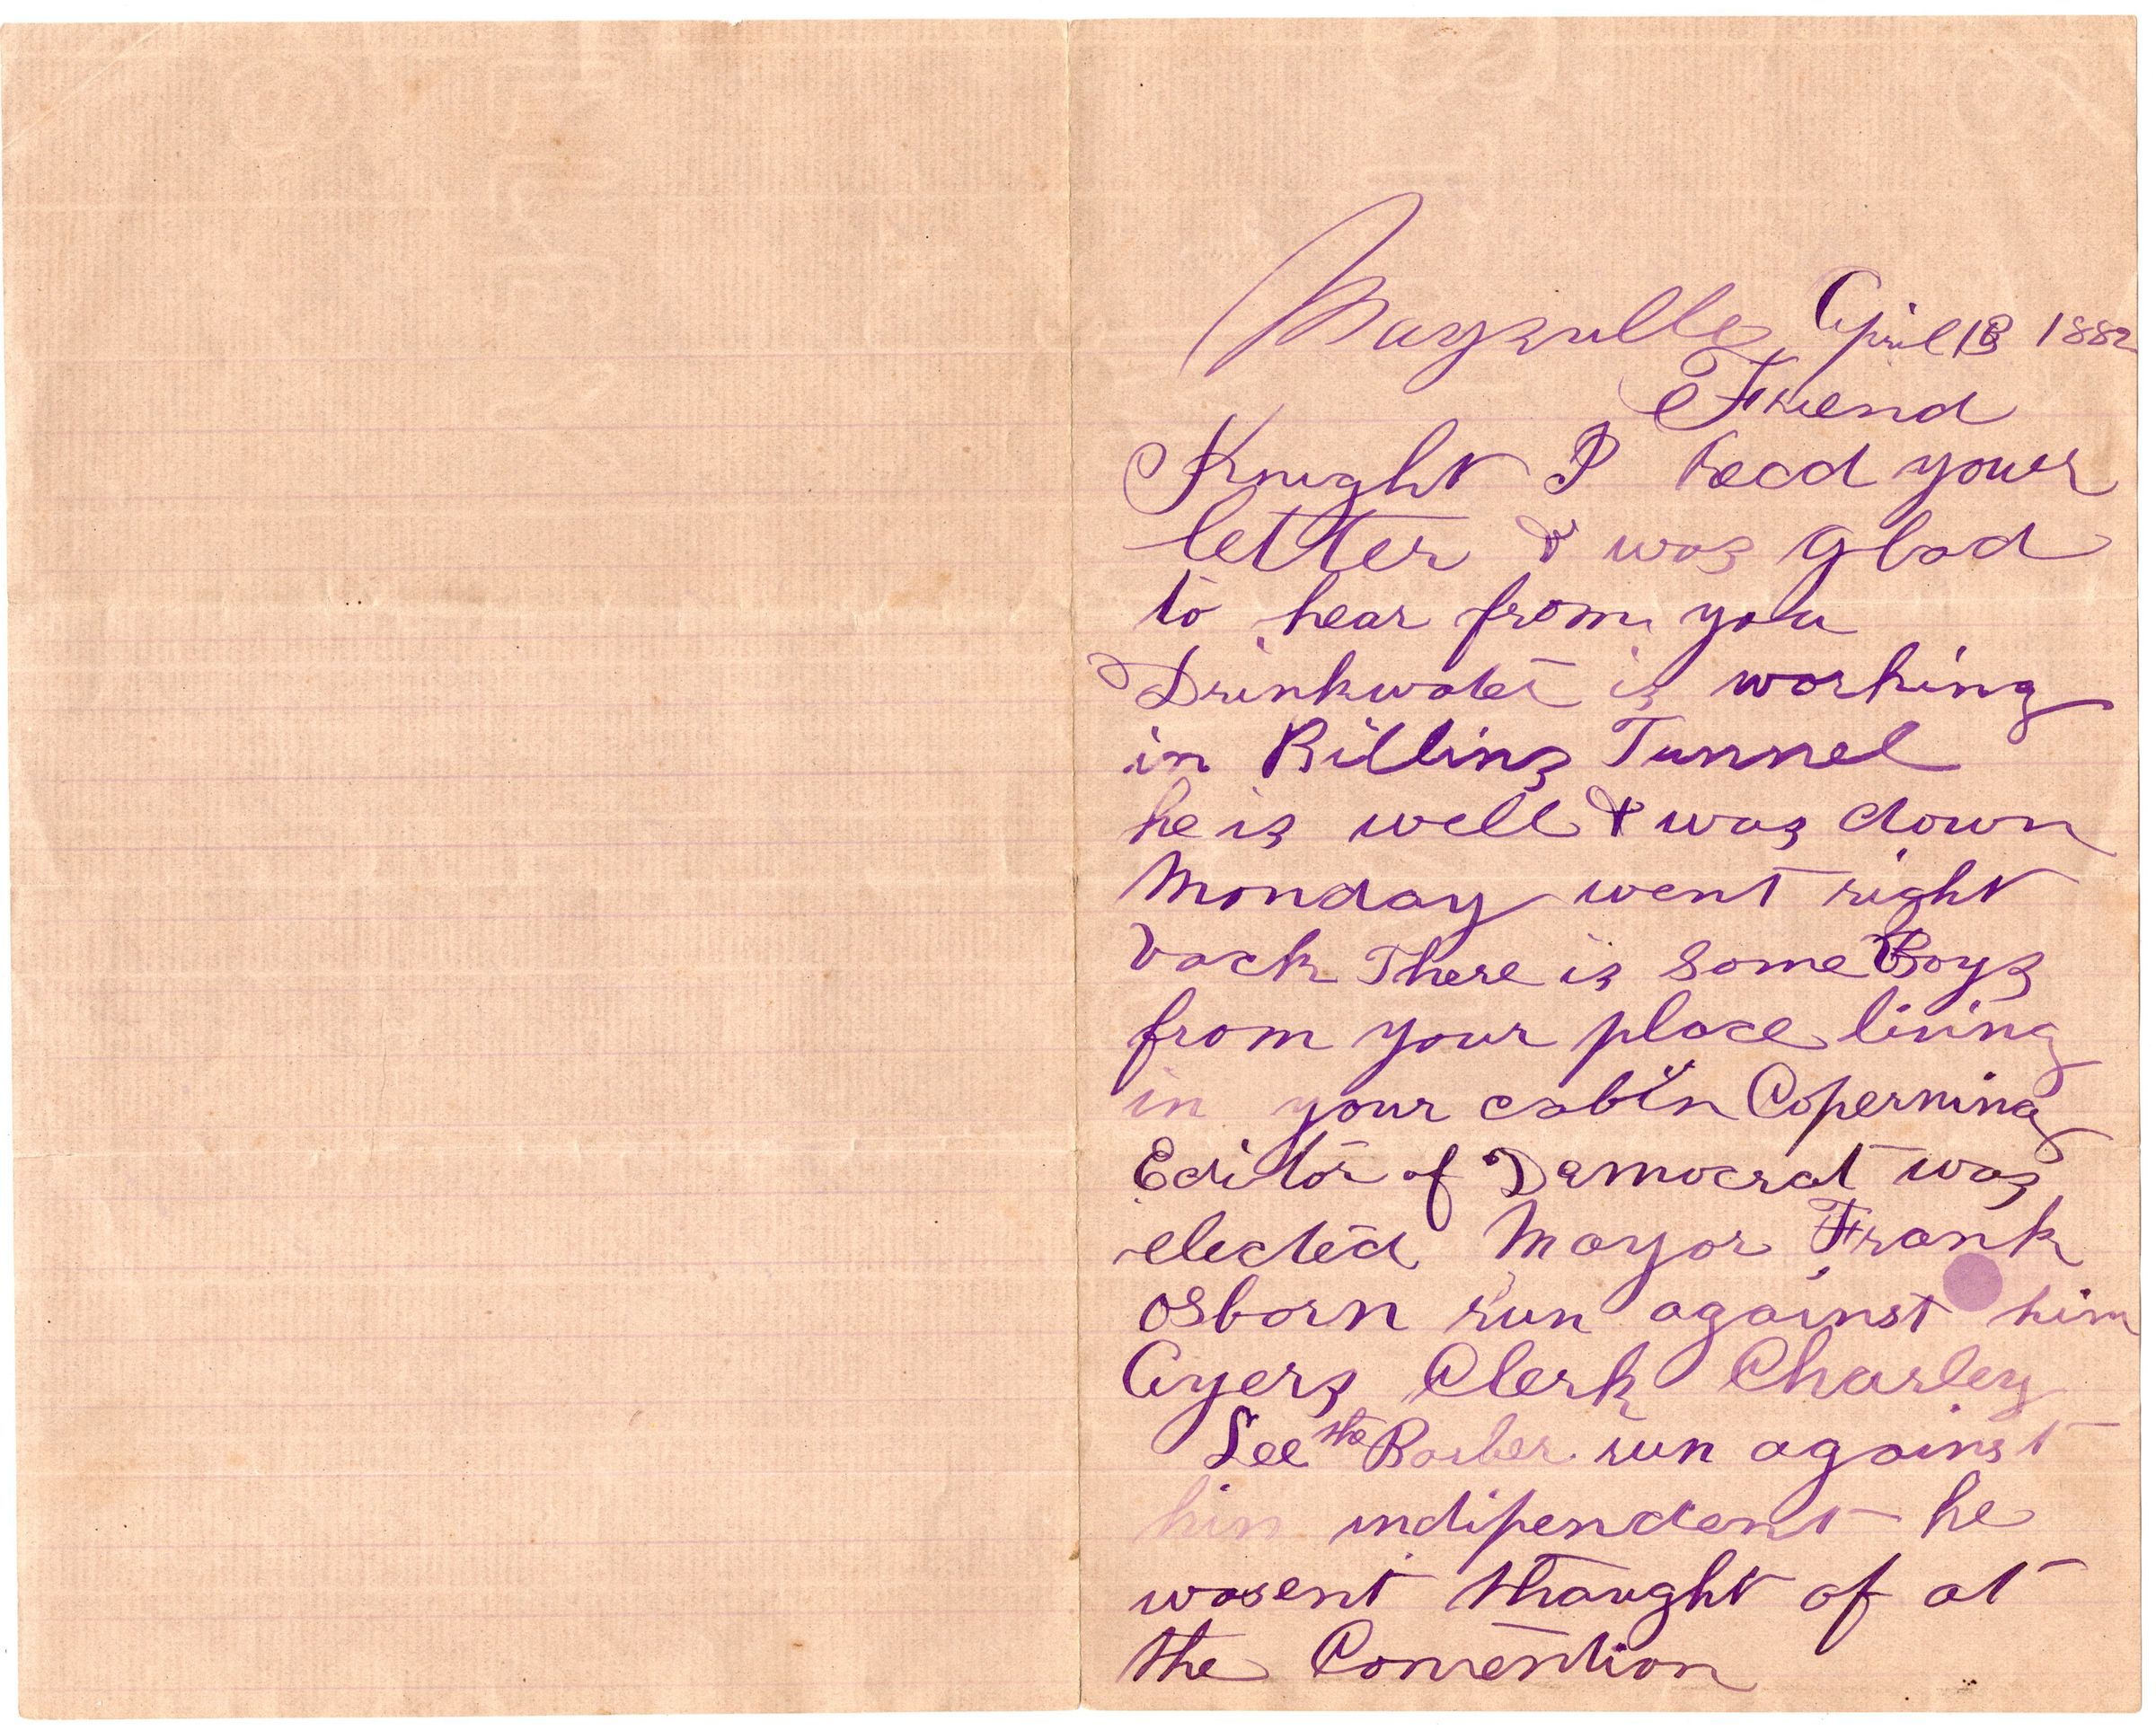 Maysville April 13 1882
Friend
Knight I Recd your
letter & was glad
to hear from you
Drinkwater is working
in Billings Tunnel
he is well & was down
Monday went right
back There is some Boys
from your place living
in your cabin Coperning
Editor of Democrat was
elected Mayor Frank
Osborn run against him
Ayers Clerk Charley
Lee the Barber run against
him indipendent he
wasent thought of at
the Convention